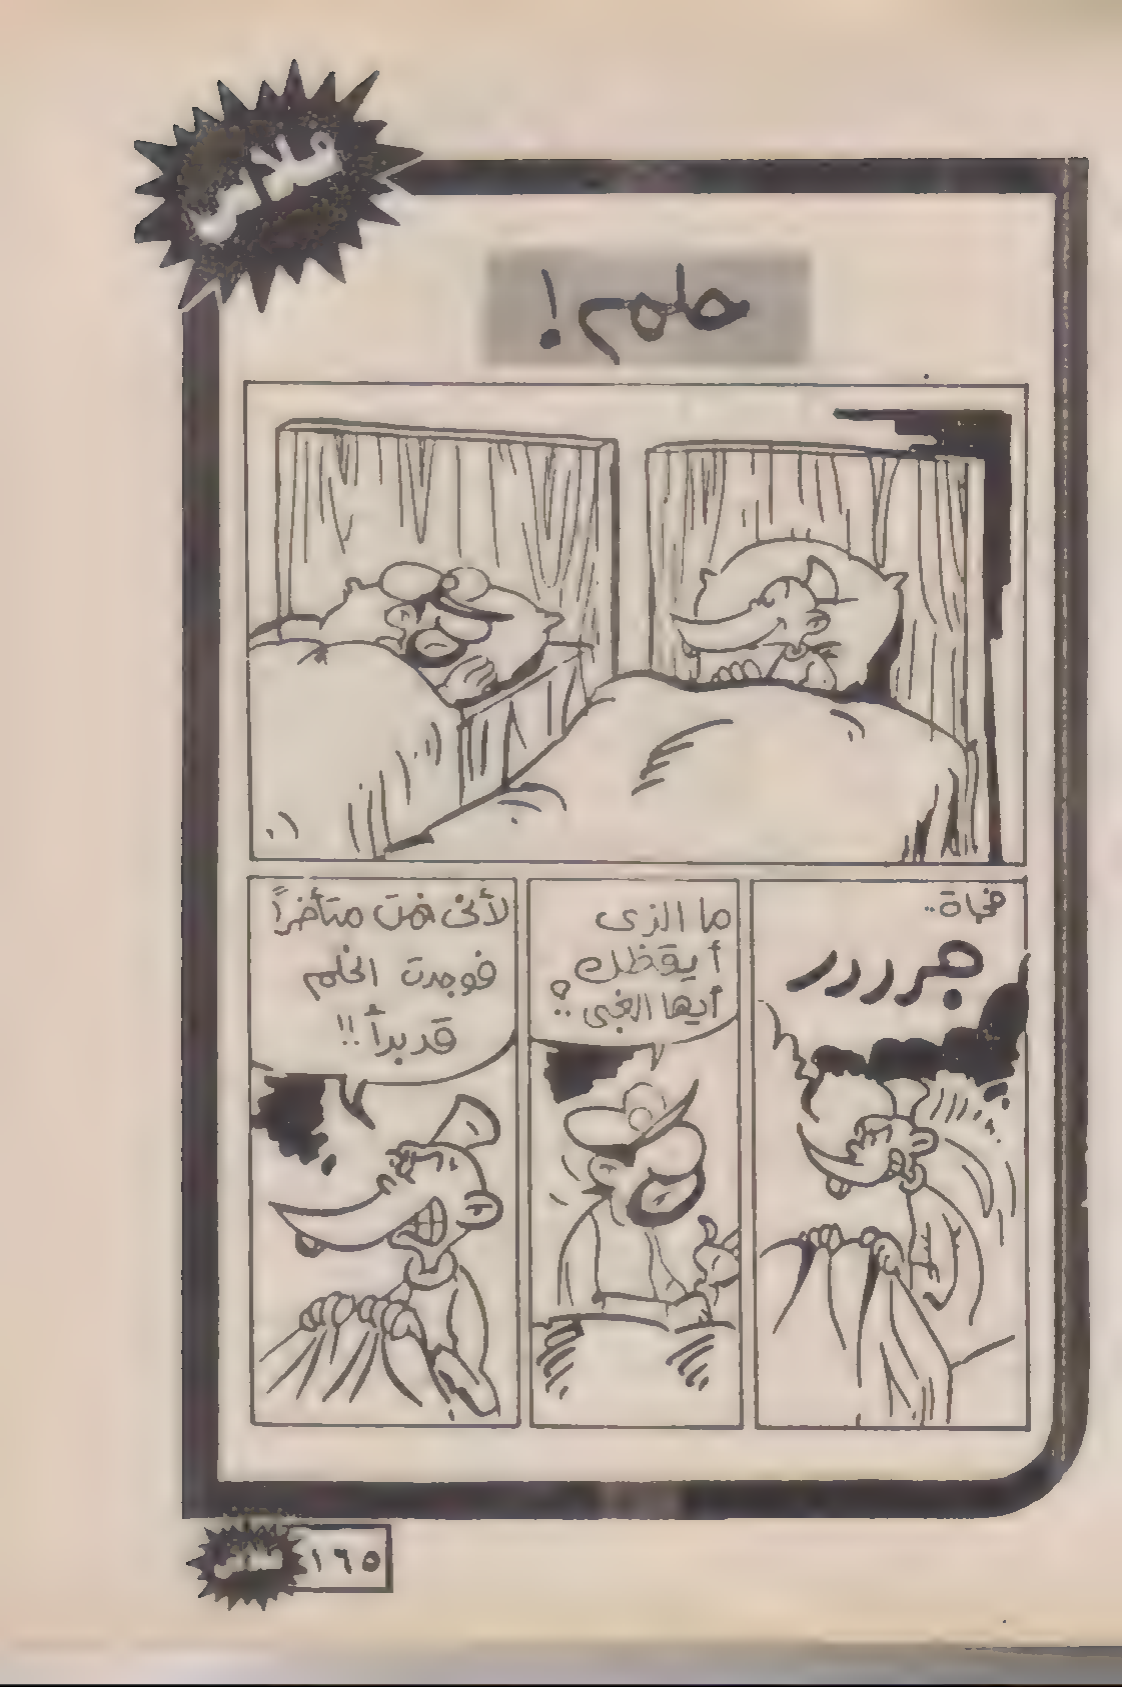 فلاش
حلم!
فجأة..
جرررر
ما الذى
أيقظك
أيها الغبى؟..
لأنى نمت متأخراً
فوجدت الحلم
قد بدأ!!
فلاش
١٦٥